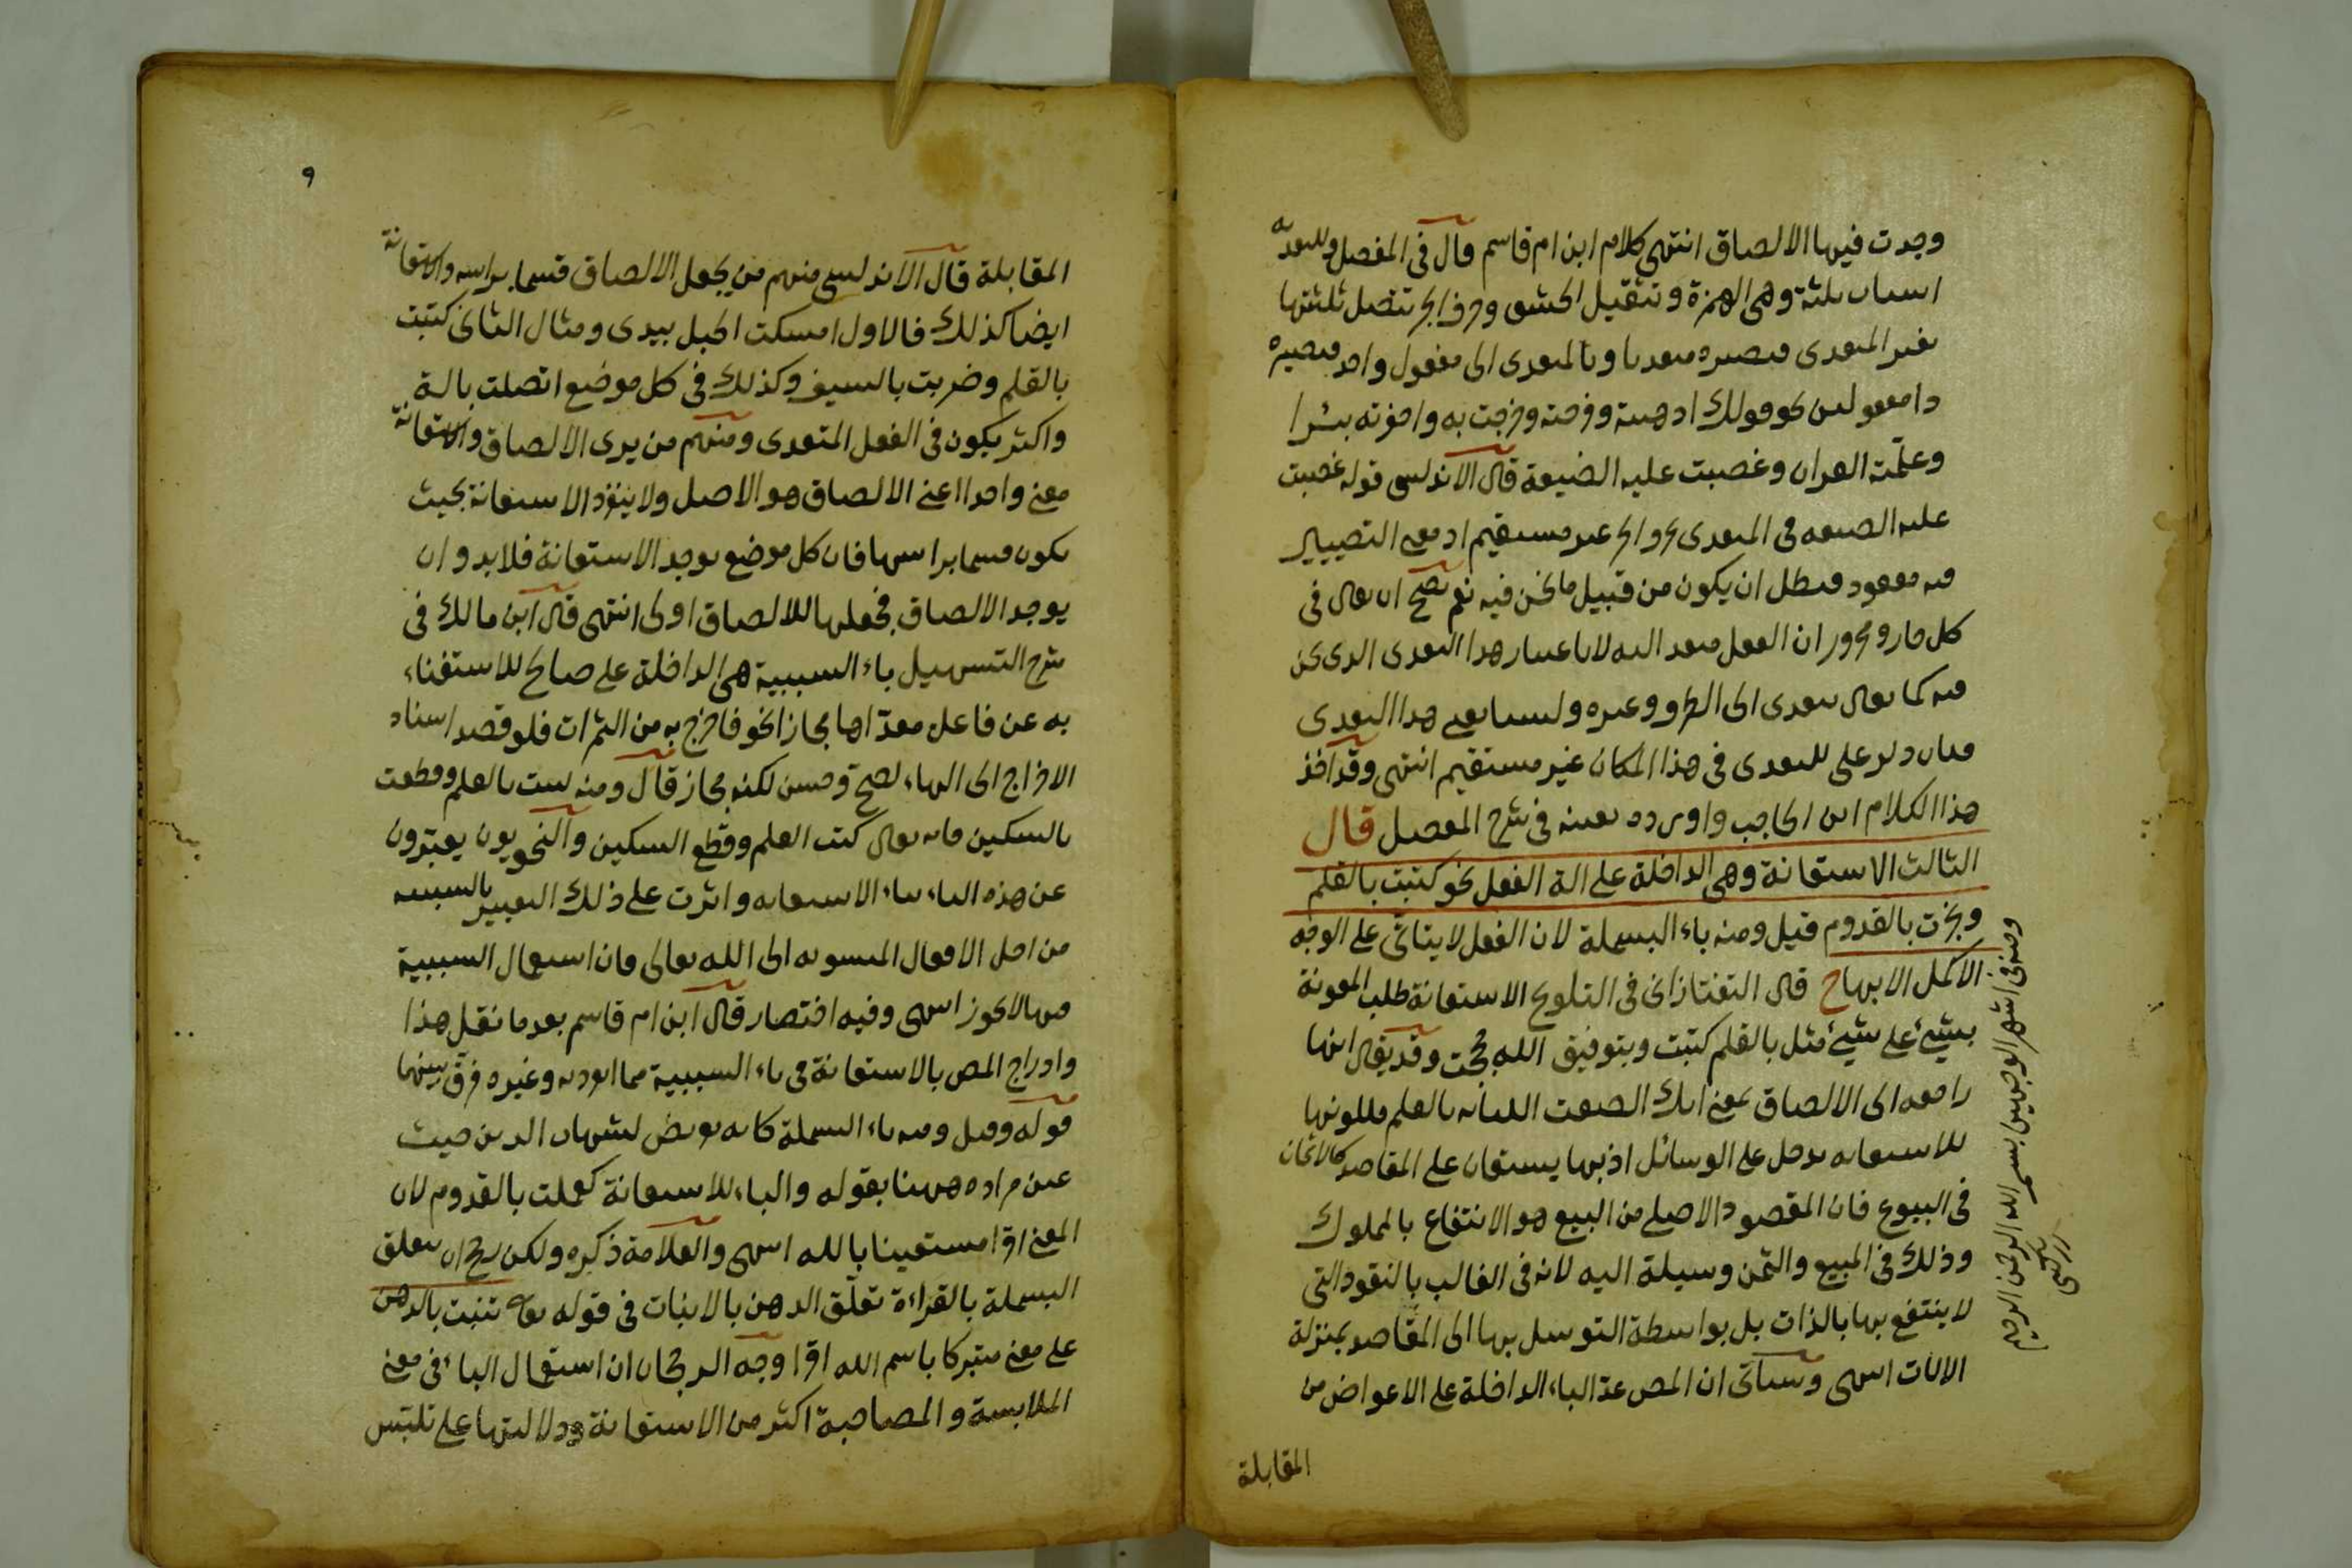 وجدت فيها الالصاق انتهى كلام ابن ام قاسم قال في المفصل وللتعدية
اسباب ثلثة وهي الهمزة وتثقيل الحشو وحرف الجر تتصل ثلثتها
بغير المتعدي فتصيره متعديا وبالمتعدي الى مفعول واحد فتصيره
ذا مفعولين نحو قولك اذهبته وفرحته وخرجت به واحفرته بئرا
وعلمته القران وغصبت عليه الضيعة قال الاندلسي قوله غصبت
عليه الضيعة في المتعدي بحرف الجر غير مستقيم اذ معنى التصيير
فيه مفقود فبطل ان يكون من قبيل ما نحن فيه نعم يصح ان يقال في
كل جار ومجرور ان الفعل متعد اليه لا باعتبار هذا التعدي الذي نحن
فيه كما يقال يتعدى الى الظرف وغيره ولسنا نعني هذا التعدي
فبان دلو على للتعدي في هذا المكان غير مستقيم انتهى وقد اخذ
هذا الكلام ابن الحاجب واورده بعينه في شرح المفصل قال
الثالث الاستعانة وهي الداخلة على الة الفعل نحو كتبت بالقلم
ونجرت بالقدوم قيل ومنه باء البسملة لان الفعل لا يتأتى على الوجه
الاكمل الا بها ح قال التفتازاني في التلويح الاستعانة طلب المعونة
بشيء على شيء مثل بالقلم كتبت وبتوفيق الله حججت وقد يقال انها
راجعه الى الالصاق بمعنى انك الصقت الكتابه بالقلم فلكونها
للاستعانه تدخل على الوسائل اذ بها يستعان على المقاصد كالاثمان
في البيوع فان المقصود الاصلي من البيع هو الانتفاع بالمملوك
وذلك في المبيع والثمن وسيلة اليه لانه في الغالب بالنقود التي
لا ينتفع بها بالذات بل بواسطة التوسل بها الى المقاصد بمنزلة
الالات انتهى وسيأتي ان المص عد الباء الداخلة على الاعواض من
المقابلة
ومنه في اشهر الوجهين بسم الله الرحمن الرحيم
زركشي
٩
المقابلة قال الاندلسي منهم من يجعل الالصاق قسما براسه والاستعانة
ايضا كذلك فالاول امسكت الحبل بيدي ومثال الثاني كتبت
بالقلم وضربت بالسيف وكذلك في كل موضع اتصلت بالة
واكثر يكون في الفعل المتعدي ومنهم من يرى الالصاق والاستعانة
معنى واحدا اعني الالصاق هو الاصل ولا ينفرد الاستعانة بحيث
يكون قسما براسها فان كل موضع يوجد الاستعانة فلا بد وان
يوجد الالصاق فجعلها للالصاق اولى انتهى قال ابن مالك في
شرح التسهيل باء السببية هي الداخلة على صالح للاستغناء
به عن فاعل معداها مجازا نحو فاخرج به من الثمرات فلو قصد اسناد
الاخراج الى الهاء لصح وحسن لكنه مجاز قال ومنه كتبت بالقلم وقطعت
بالسكين فانه يقال كتب القلم وقطع السكين والنحويون يعبرون
عن هذه الباء بباء الاستعانه واثرت على ذلك التعبير بالسببيه
من اجل الافعال المنسوبه الى الله تعالى فان استعمال السببية
فيها لا يجوز انتهى وفيه اختصار قال ابن ام قاسم بعد ما نقل هذا
وادراج المص بالاستعانة في باء السببية مما انفرد به وغيره فرق بينهما
قوله وقيل ومنه باء البسملة كانه تعريض لشهاب الدين حيث
عين مراده ههنا بقوله والباء للاستعانة كعملت بالقدوم لان
المعنى اقرا مستعينا بالله انتهى والعلامة ذكره ولكن رجح ان يتعلق
البسملة بالقراءة تعلق الدهن بالانبات في قوله تعالى تنبت بالدهن
على معنى متبركا باسم الله اقرا وجه الرجحان ان استعمال الباء في معنى
الملابسة والمصاحبة اكثر من الاستعانة ودلالتها على تلبس